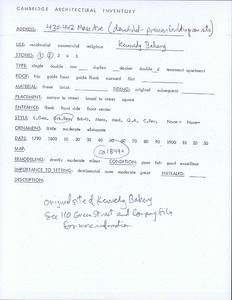 CAMBRIDGE ARCHITECTURAL INVENTORY
ADDRESS: 430-442 Mass Ave (demolished - previous building on site)
USE: residential commercial religious Kennedy Bakery
STORIES: 1 2 3 4 5
TYPE: single double row duplex decker apartment
ROOF: hip gable front gable flank mansard flat
MATERIAL: frame brick SIDING: original subsequent
PLACEMENT: narrow to street broad to street square
ENTRANCE: flank front side front center
STYLE: Q.A., C.Rev., None
ORNAMENT: little moderate elaborate
DATE: 1790 1800 10 20 30 40 50 60 70 80 90 1900 10 20 30
MAP: ca 1849
REMODELING: drastic moderate minor CONDITION: poor fair good excellent
IMPORTANCE TO SETTING: detrimental none moderate great
DESCRIPTION:
original site of Kennedy Bakery
See 110 Green Street and Company File
for more information